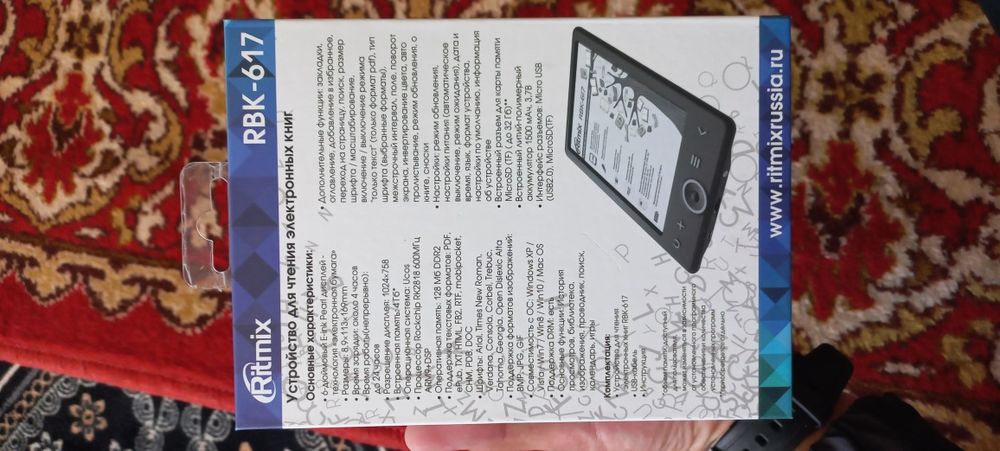 Ritmix
RBK-617
Устройство для чтения электронных книг
Основные характеристики:
6-дюймовый E-Ink Pearl дисплей -
технология «электронная бумага»
Размеры: 8,9×113×169mm
Время зарядки: около 4 часов
Время работы(непрерывно):
до 24 часов
Разрешение дисплея: 1024x758
Встроенная память:4Гб*
Операционная система: Ucos
Процессор Rockchip RK2818 600МГц
ARM9+DSP
• Оперативная память: 128 Мб DDR2
• Поддержка текстовых форматов: PDF,
ePub, TXT, HTML, FB2, RTF, mobipocket,
CHM, PDB, DOC
• Шрифты: Arial, Times New Roman,
Verdana, Consola, Corbel, Trebuc,
Tahoma, Georgia, Open Dislexic Alta
• Поддержка форматов изображений:
BMP, JPG, GIF
• Совместимость с ОС: Windows XP /
Vista/ Win7 / Win8 / Win10 / Mac OS
• Поддержка DRM: есть
• Основные функции: История
просмотров, библиотека,
изображение, проводник, поиск,
календарь, игры
Комплектация:
• Устройство для чтения
электронных книг RBK-617
• USB-кабель
• Инструкция
• Дополнительные функции: закладки,
оглавление, добавление в избранное,
переход на страницу, поиск, размер
шрифта / масштабирование,
включение / выключение режима
"только текст" (только формат pdf), тип
шрифта (выбранные форматы),
межстрочный интервал, поле, поворот
экрана, инвертирование цвета, авто
пролистывание, режим обновления, о
книге, сноски
• Настройки: режим обновления,
настройки питания (автоматическое
выключение, режим ожидания), дата и
время, язык, формат устройства,
настройки по умолчанию, информация
об устройстве
• Встроенный разъем для карты памяти
MicroSD (TF) ( до 32 Гб)**
• Встроенный литий-полимерный
аккумулятор 1500 мАч, 3.7В
• Интерфейс разъемов: Micro USB
(USB2.0), MicroSD(TF)
ritmix RBK-617
www.ritmixrussia.ru